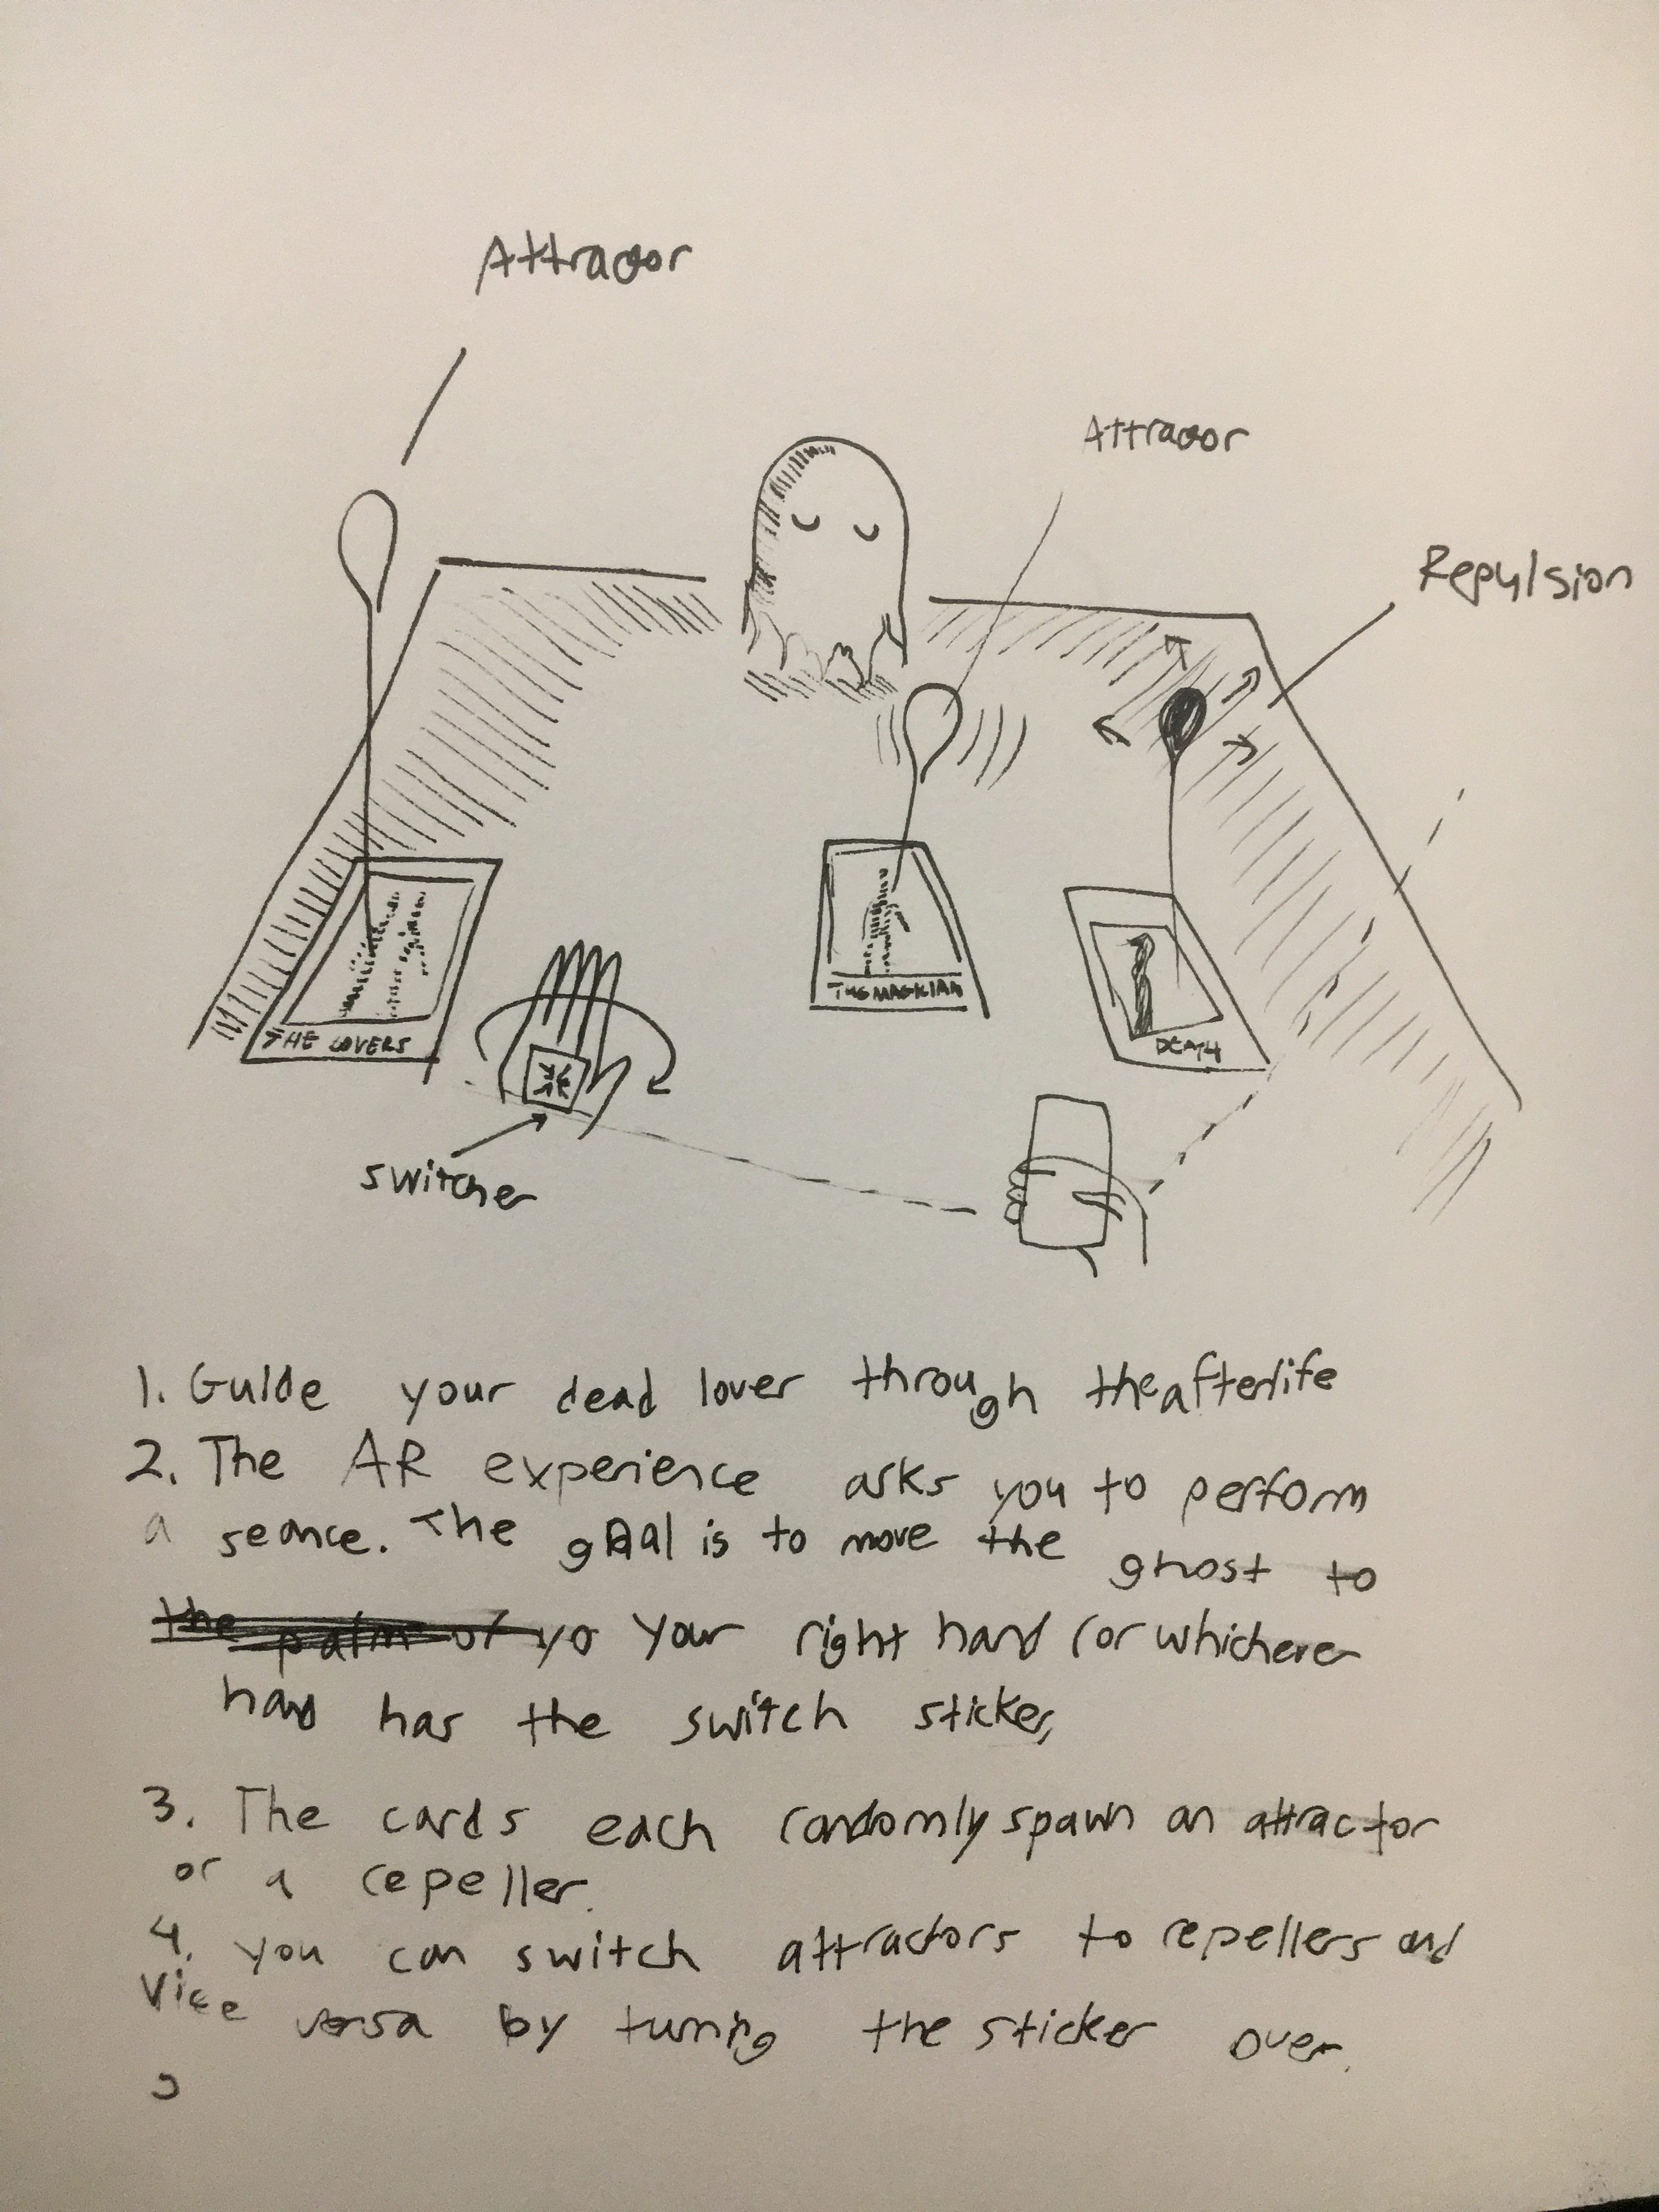 Attracor
Attracor
Repulsion
THE LOVERS
THE MAGICIAN
DEATH
switcher
1. Guide your dead lover through the afterlife
2. The AR experience asks you to perform
a seance. The goal is to move the ghost to
the palm of yo your right hand (or whichever
hand has the switch sticker,
3. The cards each randomly spawn an attractor
or a repeller.
4. you can switch attractors to repellers and
vice versa by turning the sticker over.